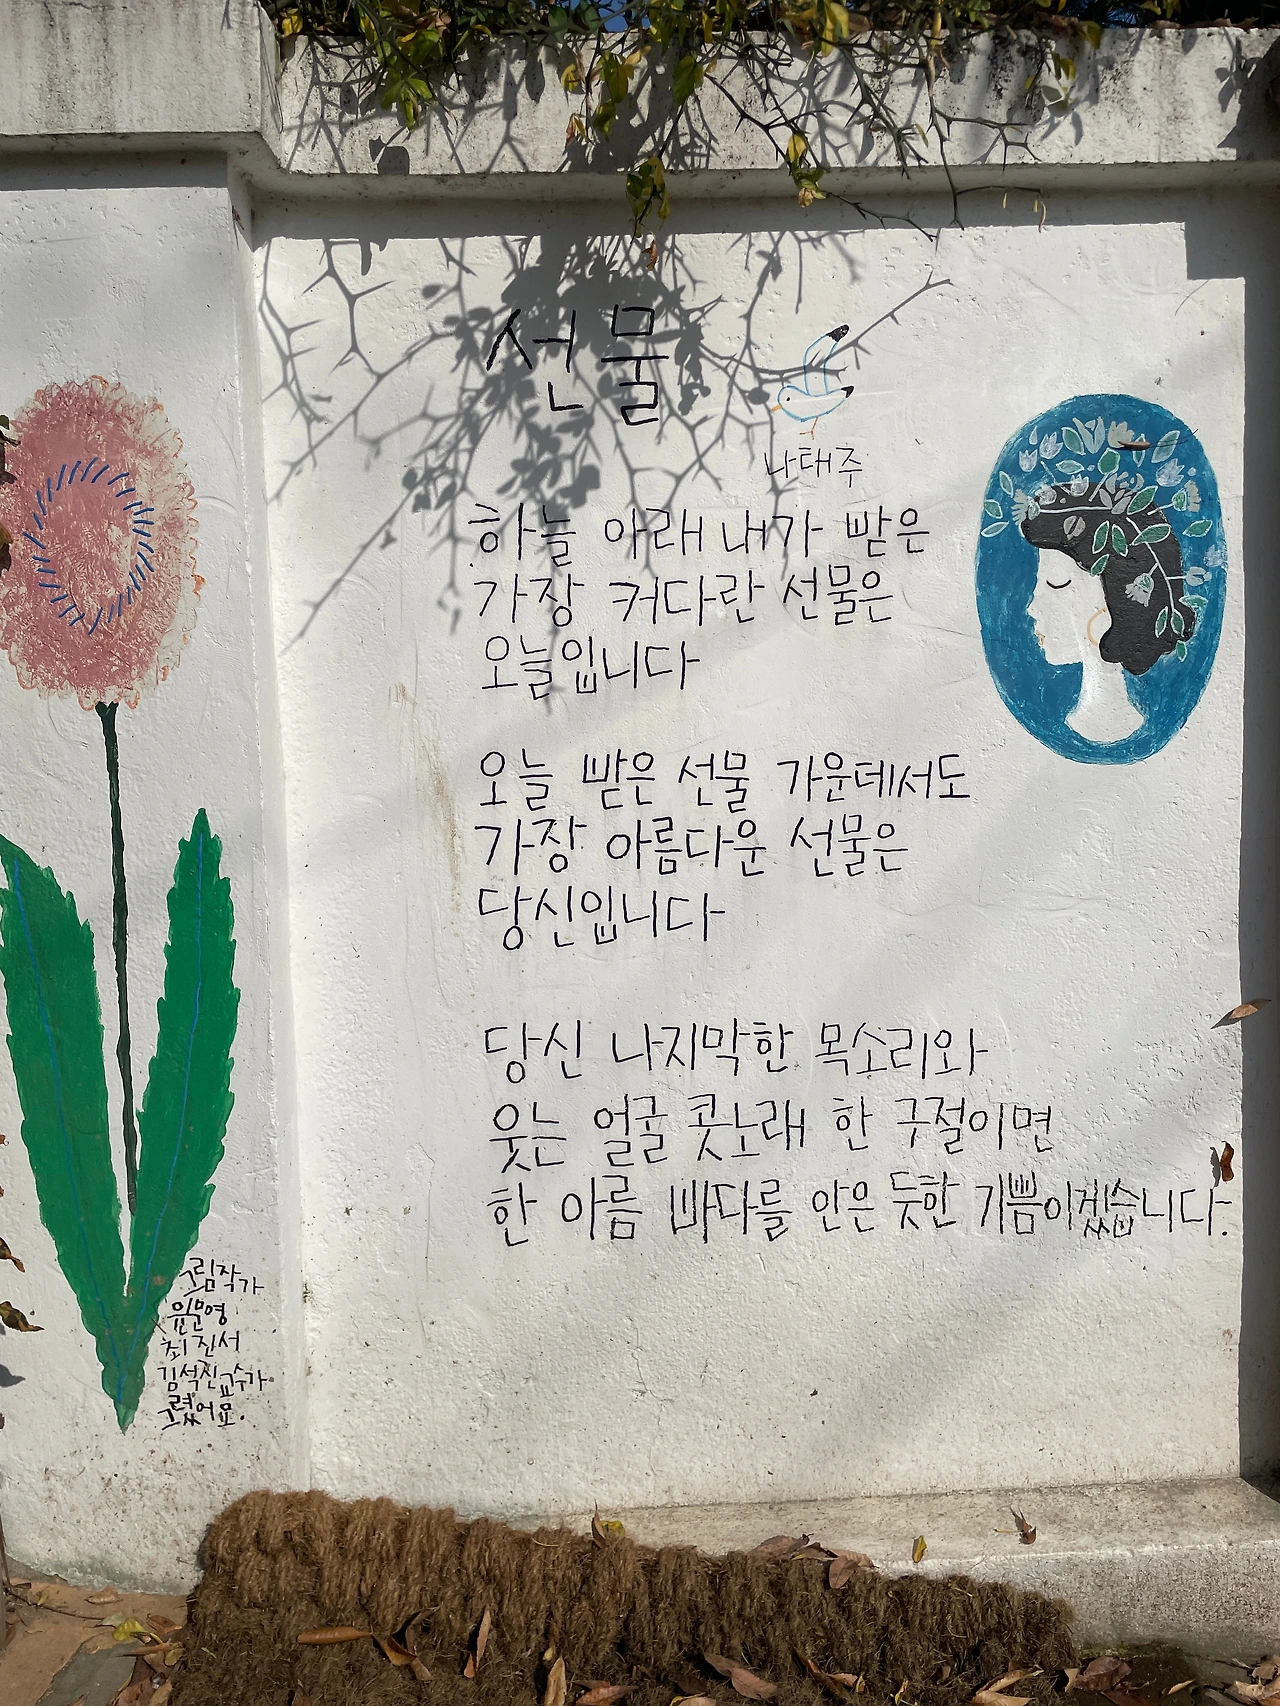 선물
나태주
하늘 아래 내가 빧은
가장 커다란 선물은
오늘입니다
오늘 빧은 선물 가운데서도
가장 아름다운 선물은
당신입니다
당신 나지막한 목소리와
웃는 얼굴 콧노래 한 구절이면
한 아름 바다를 안은 듯한 기쁨이겠습니다.
그림작가
윤문영
최진서
김석진교수가
그렸어요.